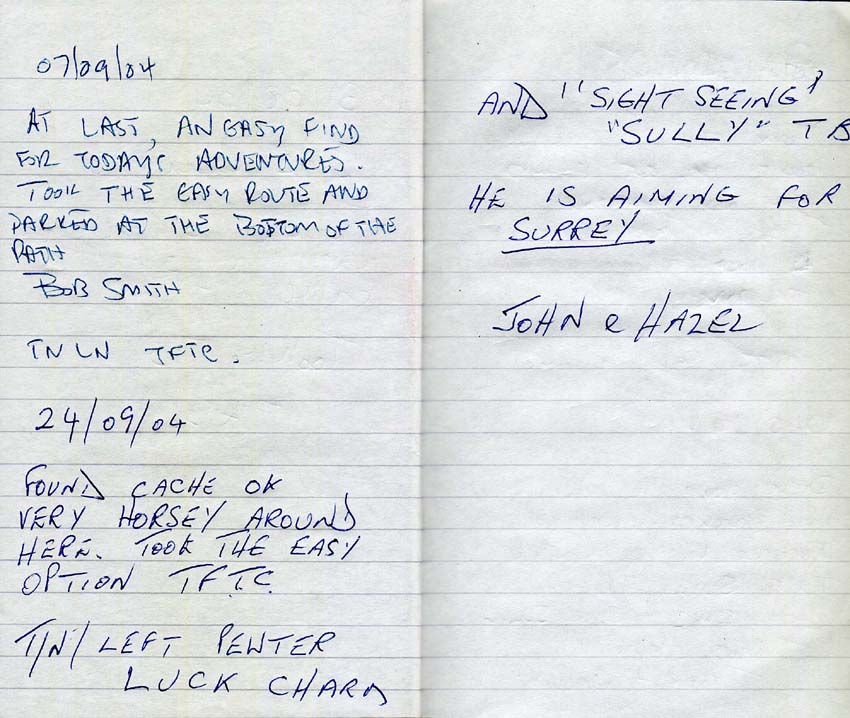 07/09/04
AT LAST, AN EASY FIND
FOR TODAYS ADVENTURES.
TOOK THE EASY ROUTE AND
PARKED AT THE BOTTOM OF THE
PATH
BOB SMITH
TN LN TFTC.
24/09/04
FOUND CACHE OK
VERY HORSEY AROUND
HERE. TOOK THE EASY
OPTION T.F.T.C.
T/N/ LEFT PEWTER
LUCK CHARM
AND "SIGHT SEEING"
"SULLY" TB
HE IS AIMING FOR
SURREY
JOHN & HAZEL